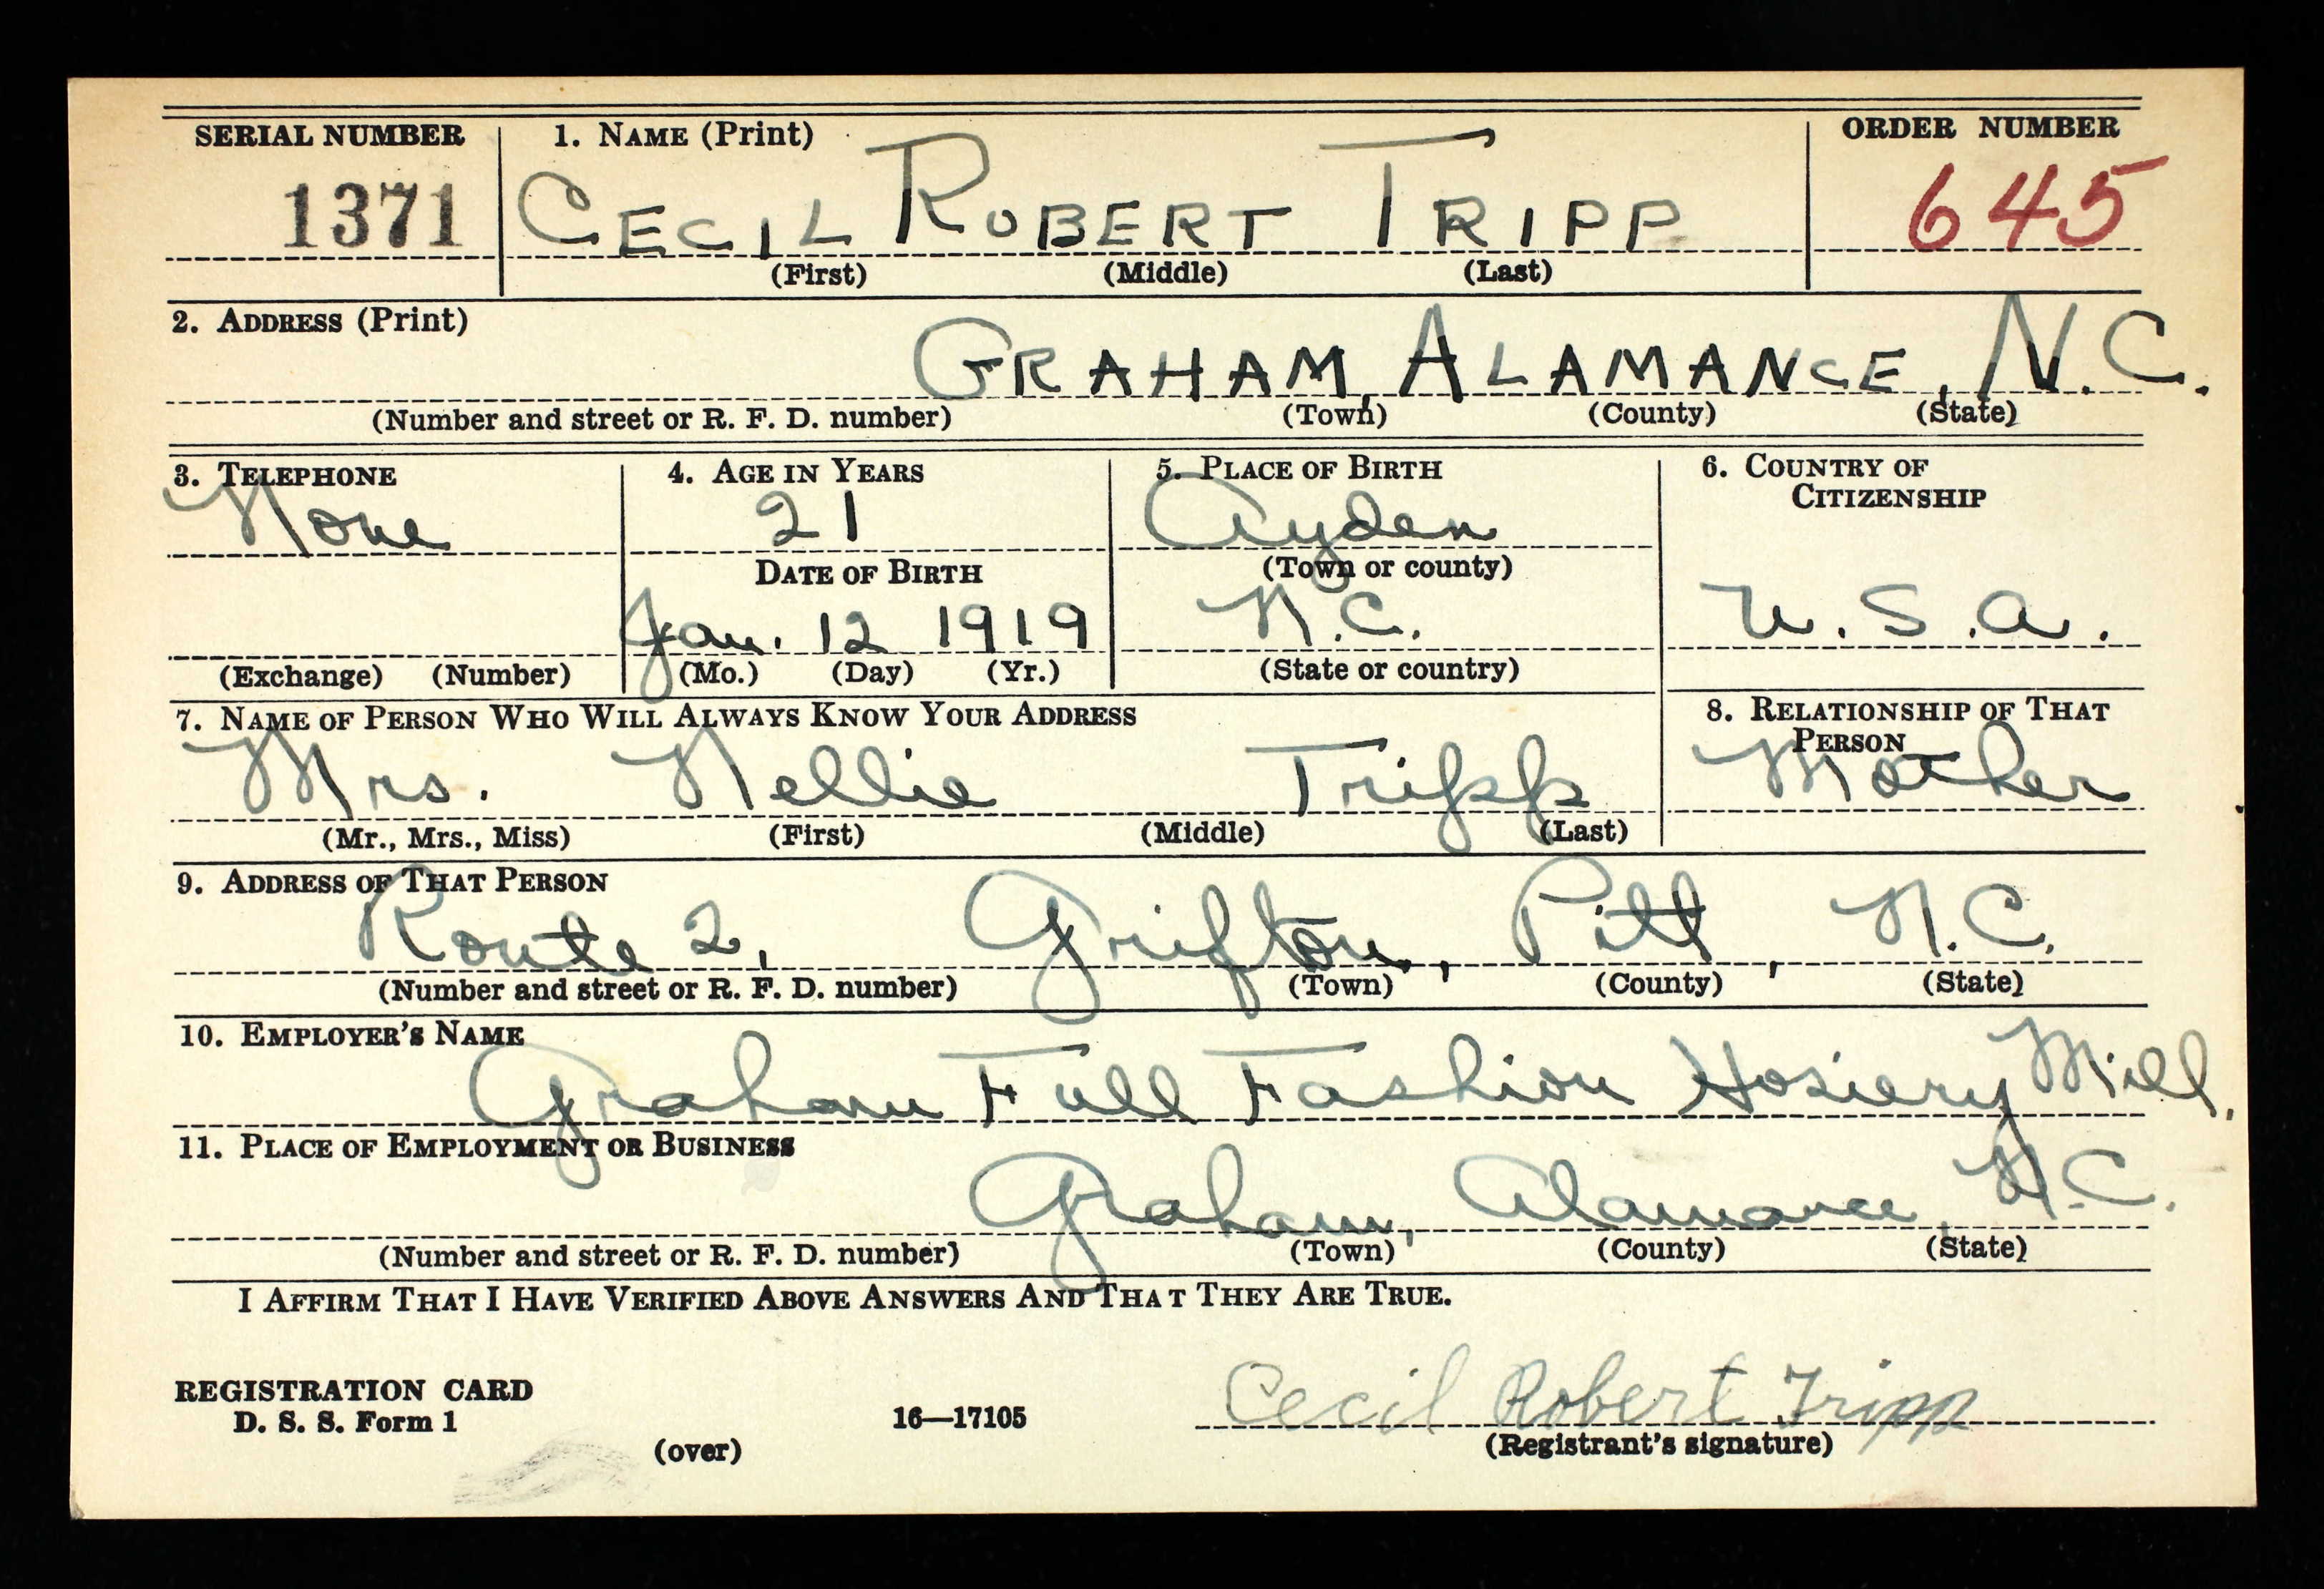 SERIAL NUMBER 1. NAME (Print) ORDER NUMBER
1371 CECIL ROBERT TRIPP 645
(First) (Middle) (Last)
2. ADDRESS (Print)
GRAHAM, ALAMANCE, N.C.
(Number and street or R. F. D. number) (Town) (County) (State)
3. TELEPHONE 4. AGE IN YEARS 5. PLACE OF BIRTH 6. COUNTRY OF
CITIZENSHIP
None 21 Ayden
DATE OF BIRTH (Town or county)
Jan. 12 1919 N.C. U.S.A.
(Exchange) (Number) (Mo.) (Day) (Yr.) (State or country)
7. NAME OF PERSON WHO WILL ALWAYS KNOW YOUR ADDRESS 8. RELATIONSHIP OF THAT
PERSON
Mrs. Nellie Tripp Mother
(Mr., Mrs., Miss) (First) (Middle) (Last)
9. ADDRESS OF THAT PERSON
Route 2, Grifton, Pitt, N.C.
(Number and street or R. F. D. number) (Town) (County) (State)
10. EMPLOYER'S NAME
Graham Full Fashion Hosiery Mill.
11. PLACE OF EMPLOYMENT OR BUSINESS
Graham, Alamance, N.C.
(Number and street or R. F. D. number) (Town) (County) (State)
I AFFIRM THAT I HAVE VERIFIED ABOVE ANSWERS AND THAT THEY ARE TRUE.
REGISTRATION CARD
D. S. S. Form 1 16—17105 Cecil Robert Tripp
(over) (Registrant's signature)